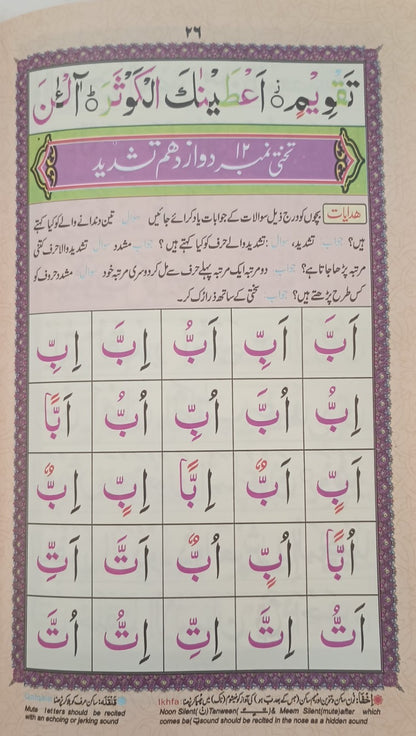 ۲۶
تَقْوِيْمٍ ۞ اَعْطَيْنٰكَ الْكَوْثَرَ ۞ آٰلْـٰٔنَ
تختی نمبر ۱۲ دوازدھم تشدید
ھدایات بچوں کو درج ذیل سوالات کے جوابات یاد کرائے جائیں سوال تین دندانے والے کو کیا کہتے
ہیں؟ جواب تشدید، سوال :تشدید والے حرف کو کیا کہتے ہیں؟ جواب مشدد سوال تشدید والا حرف کتنی
مرتبہ پڑھا جاتا ہے؟ جواب دو مرتبہ ایک مرتبہ پہلے حرف سے مل کر دوسری مرتبہ خود سوال مشدد حروف کو
کس طرح پڑھتے ہیں؟ جواب سختی کے ساتھ ذرا رُک کر۔
اَبَّ اَبِّ اَبُّ اِبَّ اِبِّ
اِبُّ اُبَّ اُبِّ اُبُّ اَبًّا
اَبٍّ اَبٌّ اِبًّا اِبٍّ اِبٌّ
اُبًّا اُبٍّ اُبٌّ اَتَّ اَتِّ
اَتُّ اِتَّ اِتِّ اِتُّ اُتَّ
Ikhfa:
Noon Silent(نْ) Tanween( ـًـٍـٌ )& Meem Silent(mute)after which
comes ba(ب)sound should be recited in the nose as a hidden sound
Qalqala:
Mute letters should be recited
with an echoing or jerking sound